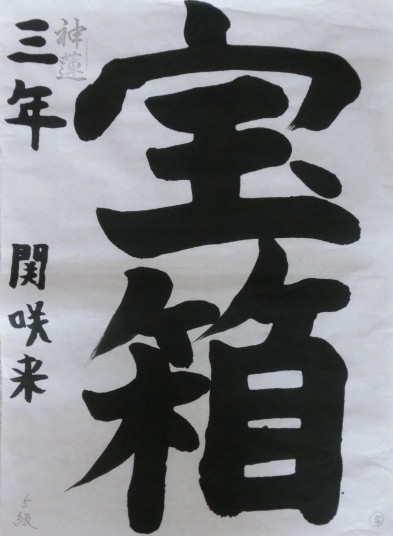 宝箱
三年 関咲来
神蓮
5級